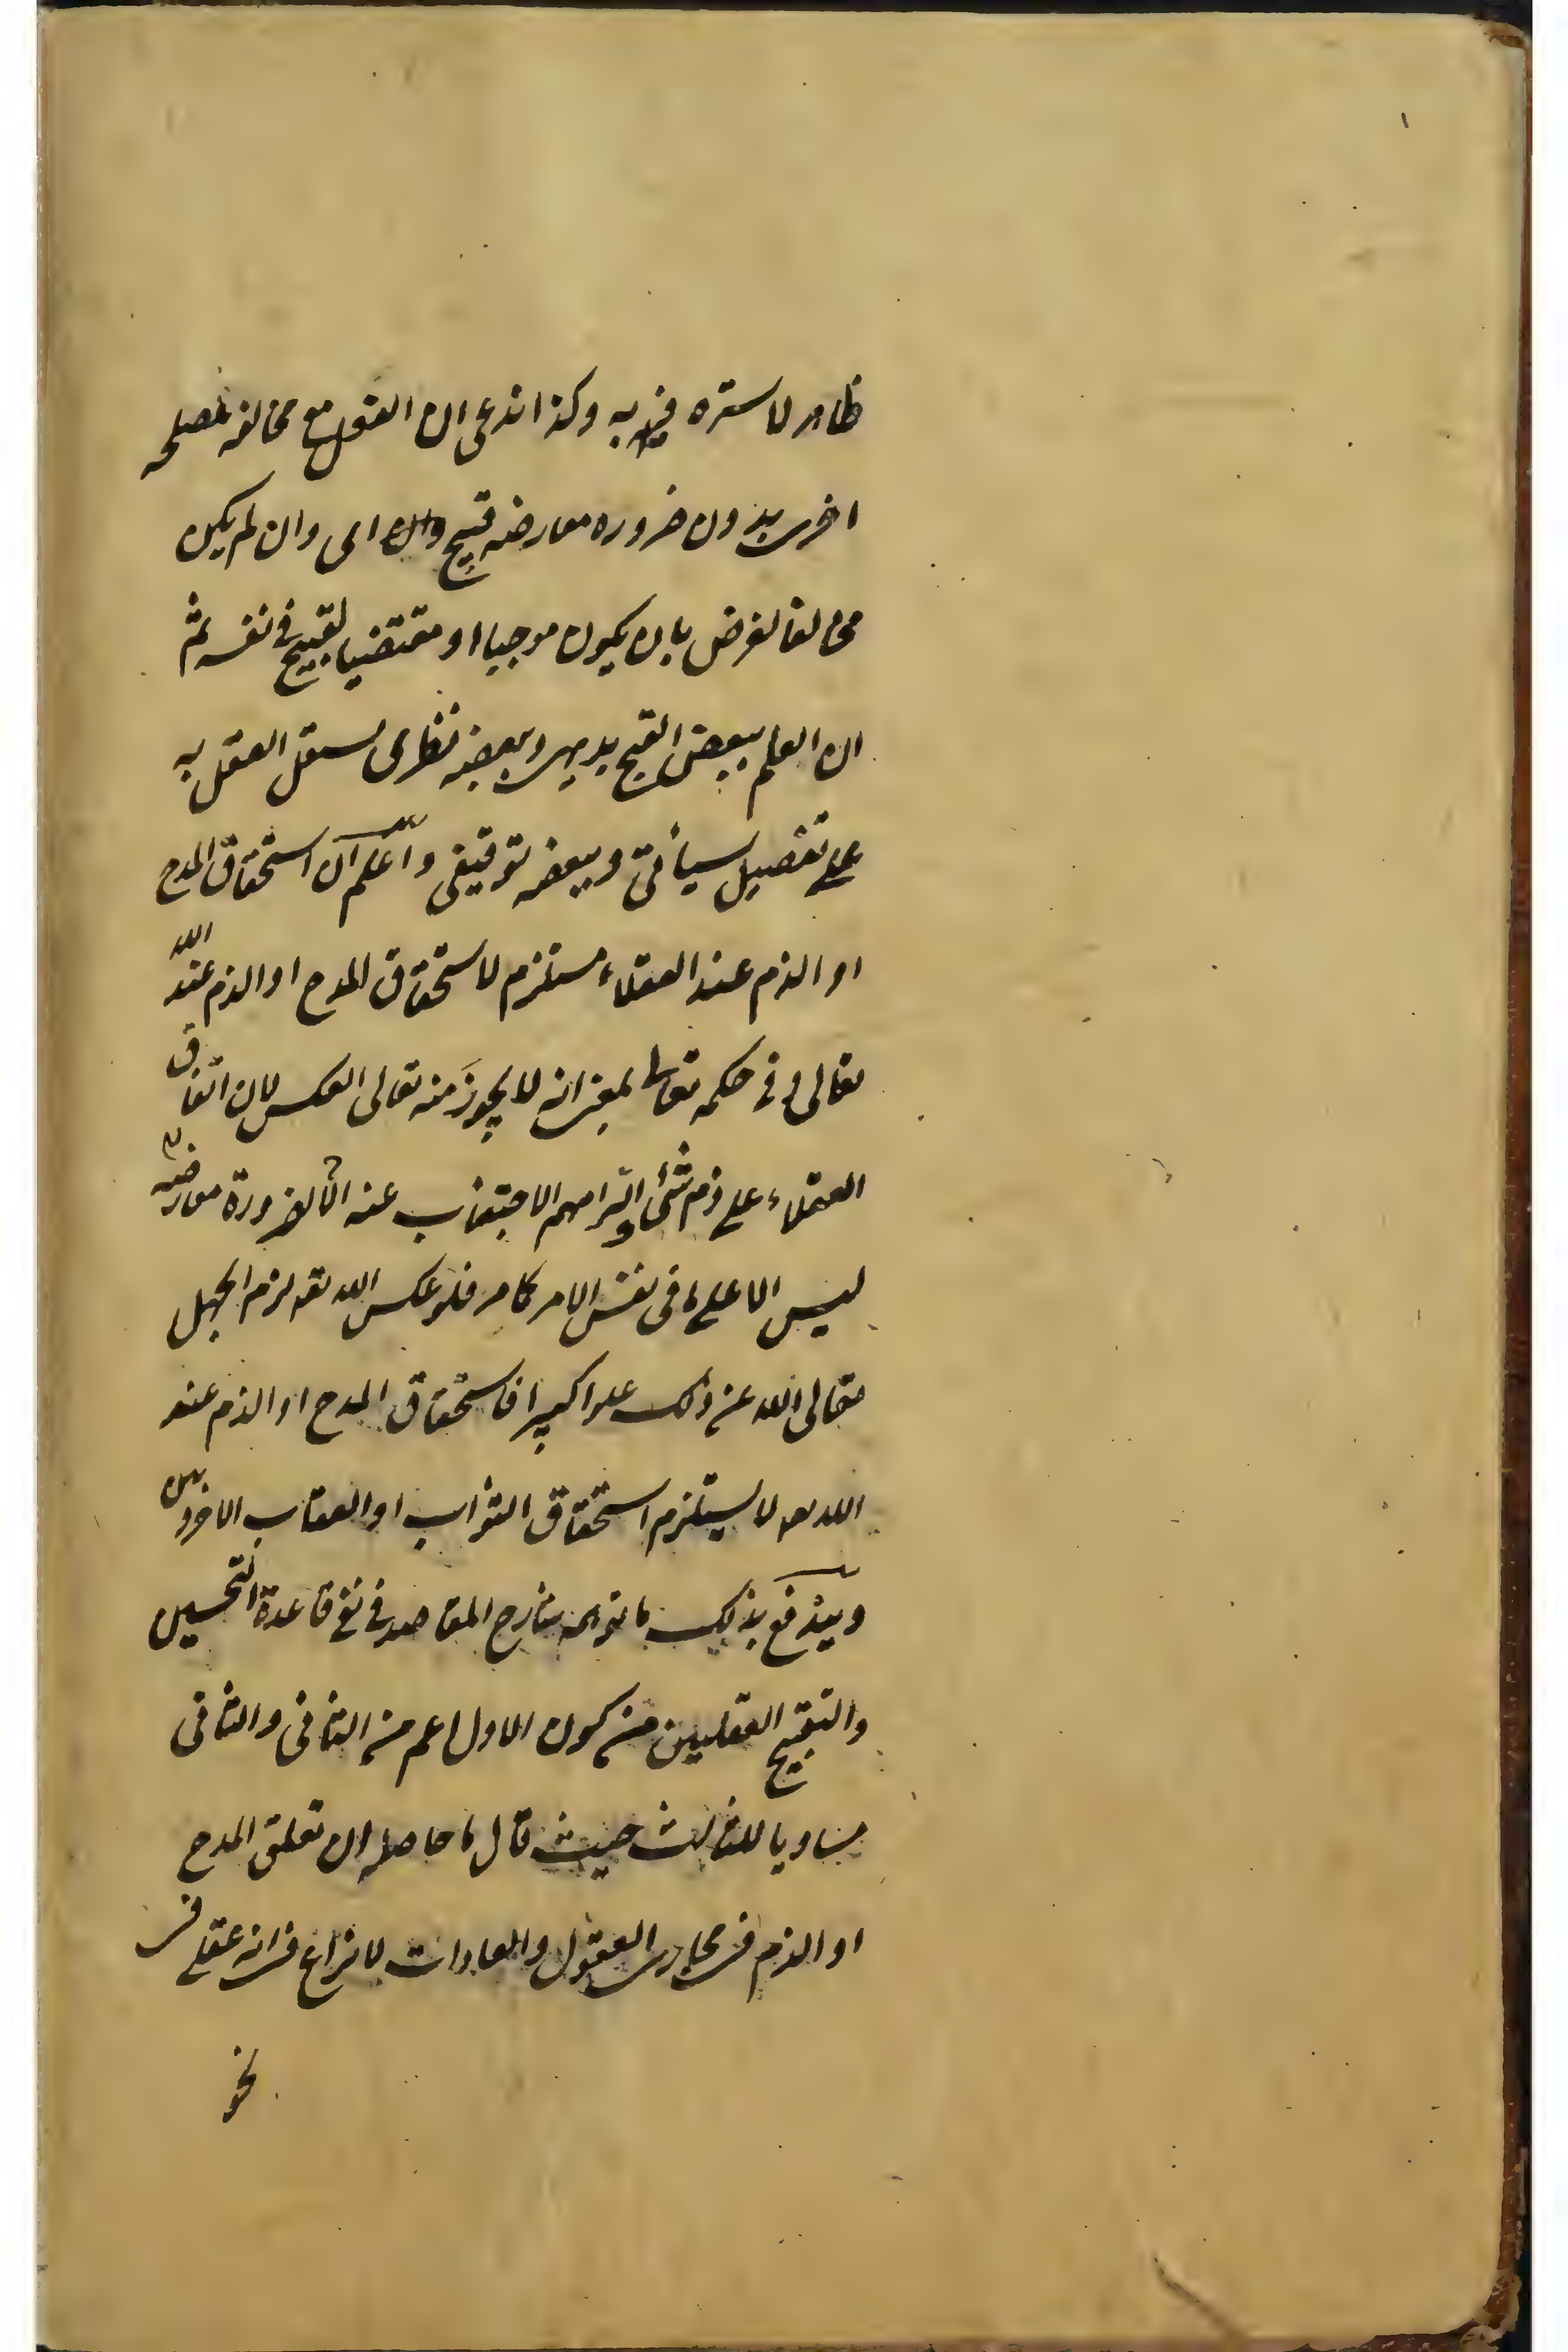 ظاهر لا سترة فيه به وكذا ندعى ان القول مع مخالفه لمصلحه
اخرى بدون ضروره معارضه قبيح وان لم يكن
مخالفا لغرض بان يكون موجبا او مقتضيا لقبيح فى نفسه ثم
ان العلم ببعض القبح بديهى وبعضه نظرى يستقل العقل به
على تفصيل سيأتى وبعضه توقيفى واعلم ان استحقاق المدح
او الذم عند العقلاء مستلزم لاستحقاق المدح او الذم عند الله
تعالى وفى حكمه تعالى بمعنى انه لا يجوز منه تعالى العكس لان اتفاق
العقلاء على ذم شئ والتزامهم الاجتناب عنه الا لضرورة معارضه
ليس الا على ما فى نفس الامر كما مر فلو عكس الله تعه لزم الجهل
تعالى الله عن ذلك علوا كبيرا فاستحقاق المدح او الذم عند
الله تعه لا يستلزم استحقاق الثواب او العقاب الاخرويين
ويندفع بذلك ما توهمه شارح المقاصد فى نفى قاعدة التحسين
والتقبيح العقليين من كون الاول اعم من الثانى والثانى
مساويا للثالث حيث قال ما حاصله ان تعلق المدح
او الذم فى مجارى العقول والعادات لا نزاع فى انه عقلى فى
نحو